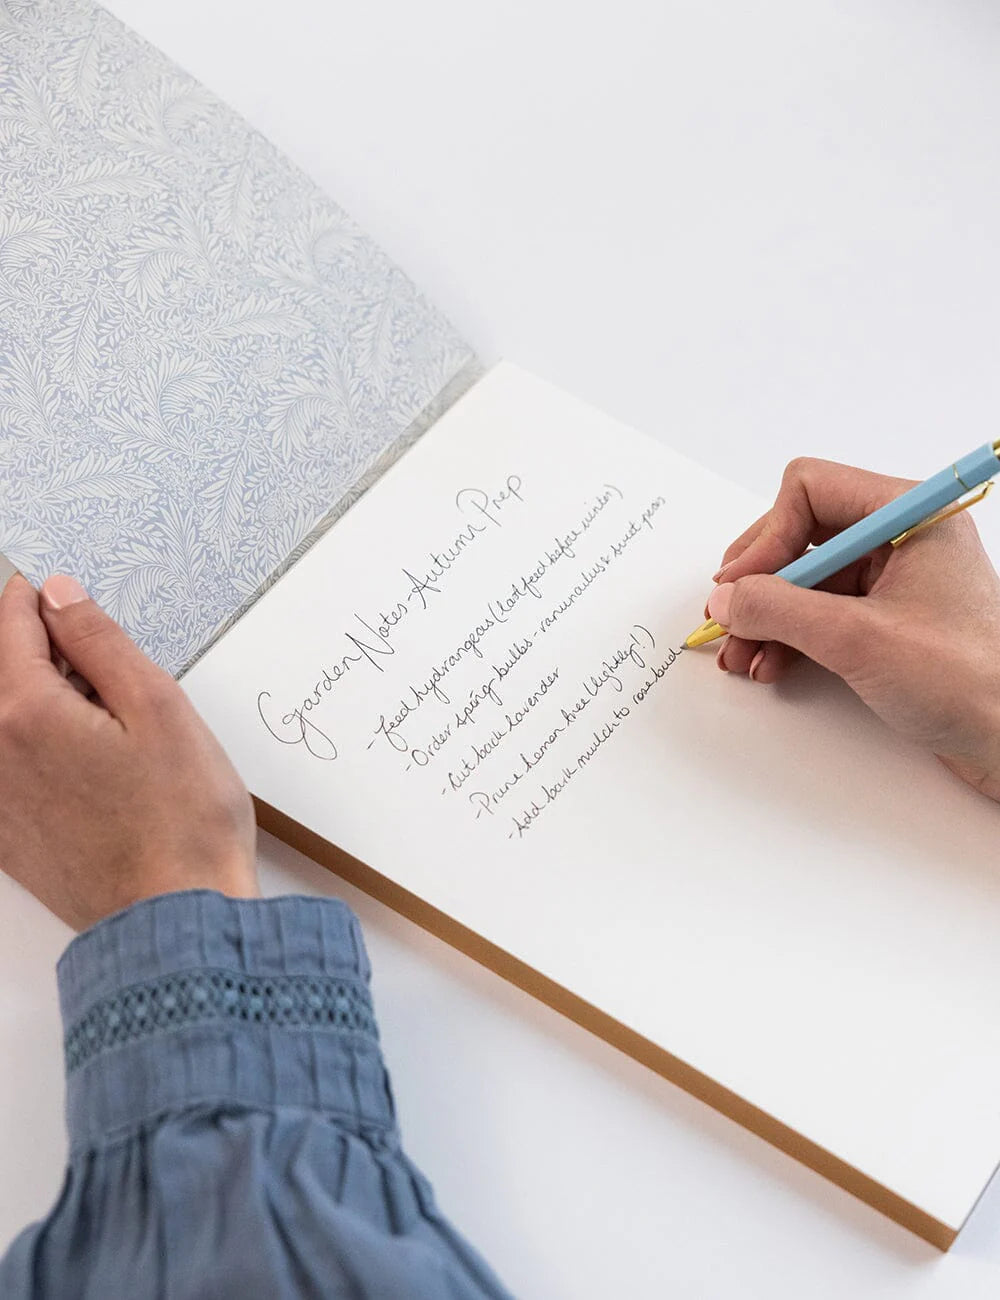 Garden Notes - Autumn Prep
- feed hydrangeas (last feed before winter)
- Order spring bulbs - ranunculus & sweet peas
- Cut back lavender
- Prune lemon tree (lightly!)
- Add bark mulch to rose bud